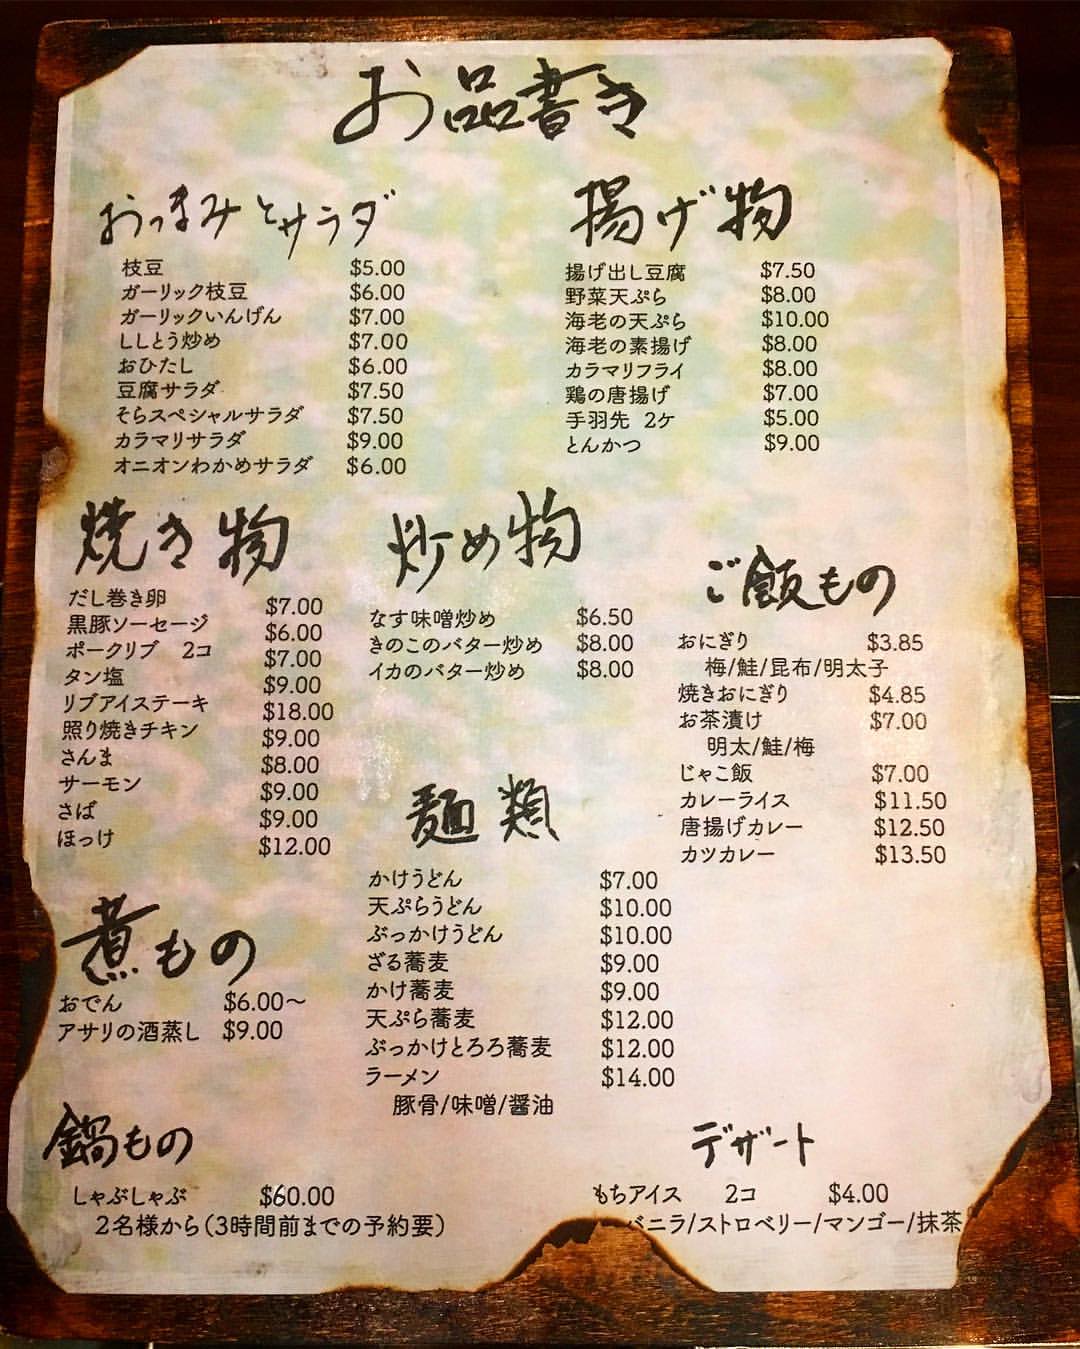 お品書き
おつまみとサラダ
枝豆 $5.00
ガーリック枝豆 $6.00
ガーリックいんげん $7.00
ししとう炒め $7.00
おひたし $6.00
豆腐サラダ $7.50
そらスペシャルサラダ $7.50
カラマリサラダ $9.00
オニオンわかめサラダ $6.00
揚げ物
揚げ出し豆腐 $7.50
野菜天ぷら $8.00
海老の天ぷら $10.00
海老の素揚げ $8.00
カラマリフライ $8.00
鶏の唐揚げ $7.00
手羽先 2ケ $5.00
とんかつ $9.00
焼き物
だし巻き卵 $7.00
黒豚ソーセージ $6.00
ポークリブ 2コ $7.00
タン塩 $9.00
リブアイステーキ $18.00
照り焼きチキン $9.00
さんま $8.00
サーモン $9.00
さば $9.00
ほっけ $12.00
炒め物
なす味噌炒め $6.50
きのこのバター炒め $8.00
イカのバター炒め $8.00
ご飯もの
おにぎり $3.85
梅/鮭/昆布/明太子
焼きおにぎり $4.85
お茶漬け $7.00
明太/鮭/梅
じゃこ飯 $7.00
カレーライス $11.50
唐揚げカレー $12.50
カツカレー $13.50
麺類
かけうどん $7.00
天ぷらうどん $10.00
ぶっかけうどん $10.00
ざる蕎麦 $9.00
かけ蕎麦 $9.00
天ぷら蕎麦 $12.00
ぶっかけとろろ蕎麦 $12.00
ラーメン $14.00
豚骨/味噌/醤油
煮もの
おでん $6.00〜
アサリの酒蒸し $9.00
鍋もの
しゃぶしゃぶ $60.00
2名様から(3時間前までの予約要)
デザート
もちアイス 2コ $4.00
バニラ/ストロベリー/マンゴー/抹茶